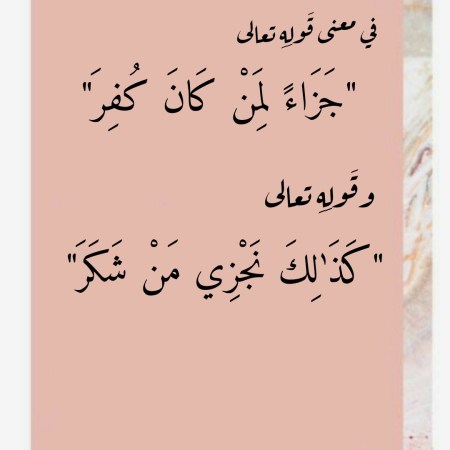 في معنى قَولِه تعالى
"جَزَاءً لِمَنْ كَانَ كُفِرَ"
و قَولِهِ تعالى
"كَذَٰلِكَ نَجْزِي مَنْ شَكَرَ"